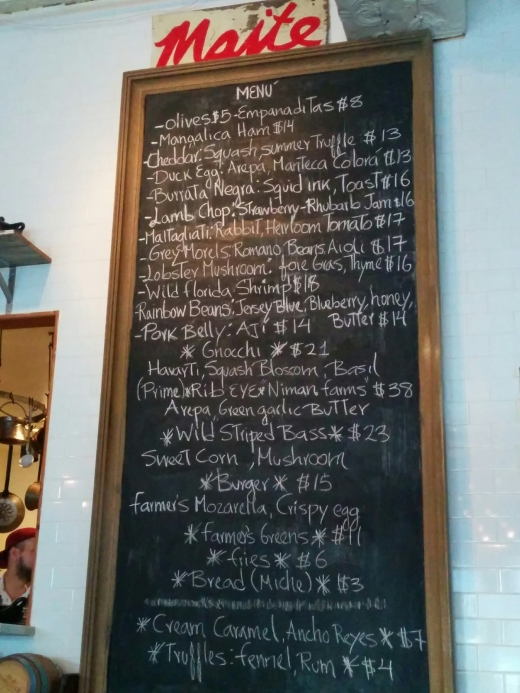 Maite
MENÚ
-olives $5 - EmpanadiTas $8
-Mangalica Ham $14
-Cheddar: Squash, summer Truffle $13
-Duck Egg: Arepa, Manteca Colorá $13
-Burrata Negra: Squid ink, Toast $16
-Lamb Chop: Strawberry-Rhubarb Jam $16
-Maltagliati: Rabbit, Heirloom Tomato $17
-Grey Morels: Romano, Beans Aioli $17
-Lobster Mushroom: foie Gras, Thyme $16
-Wild florida Shrimp $18
-Rainbow Beans: Jersey Blue, Blueberry, honey,
-Pork Belly: Ají $14 Butter $14
* Gnocchi * $21
HavaTi, Squash Blossom, Basil
(Prime)*Rib EYE* Niman farms $38
Arepa, Green garlic Butter
*Wild Striped Bass* $23
Sweet Corn, Mushroom
*Burger* $15
farmer's Mozarella, Crispy egg
*farmer's Greens* $11
*fries* $6
*Bread (Miche)* $3
*Cream Caramel, Ancho Reyes* $7
*Truffles: fennel, Rum * $4